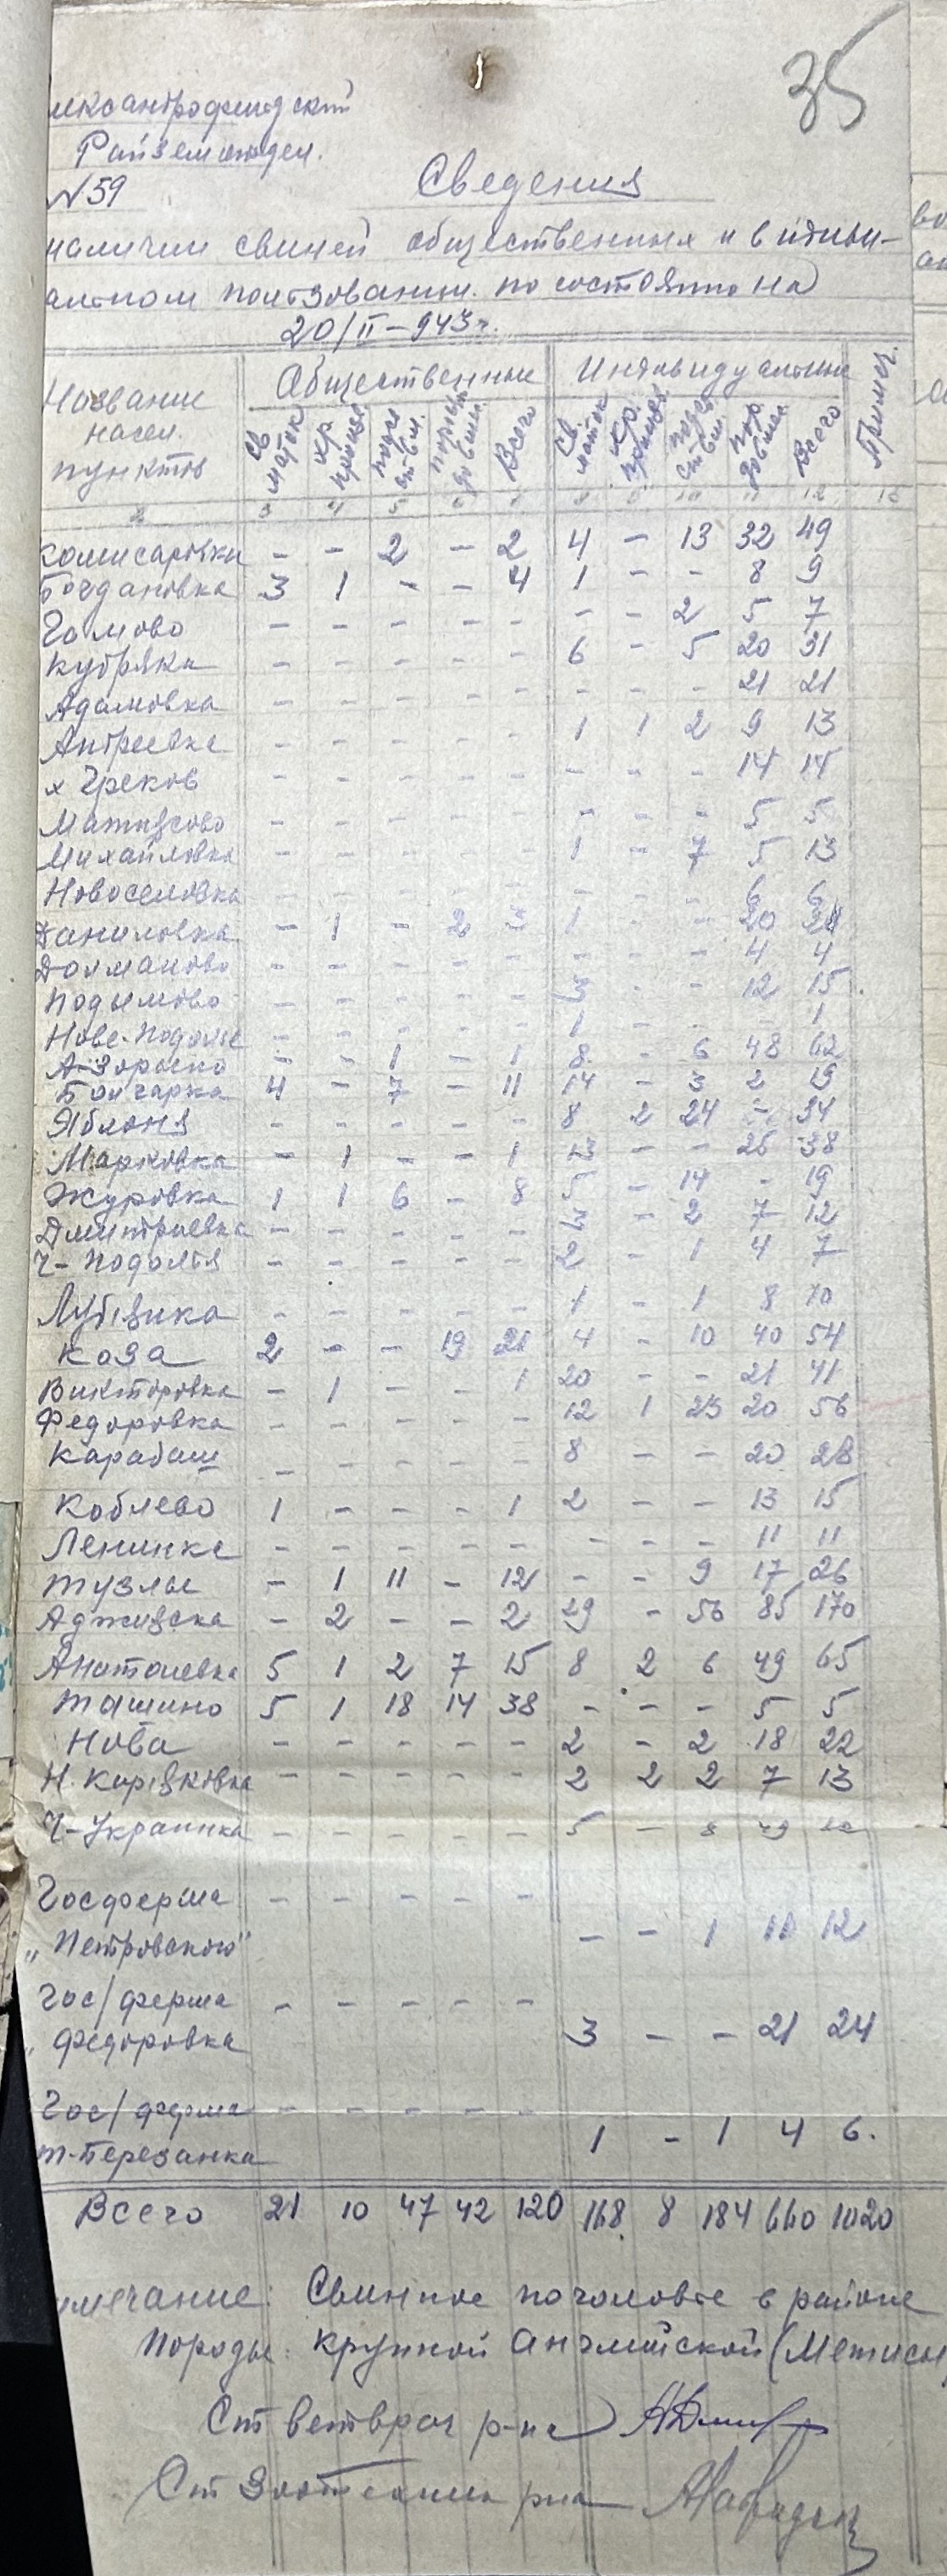 35
Райземотдел.
№59
Сведения
наличии свиней общественных и в индиви-
альном пользовании по состоянию на
20/II-943г.
Название насел. пунктов Общественные Индивидуальные Примеч.
св маток хр производ подсв порос Всего св маток хр. производ подсв пор. Всего
2 3 4 5 6 7 8 9 10 11 12 13
Комисаровка - - 2 - 2 4 - 13 32 49
Богдановка 3 1 - - 4 1 - - 8 9
- - - - - - - 2 5 7
Кубряка - - - - - 6 - 5 20 31
Адамовка - - - - - - - - 21 21
Андреевка - - - - - 1 1 2 9 13
х Греков - - - - - - - - 14 14
- - - - - - - - 5 5
Михайловка - - - - - 1 - 7 5 13
Новоселовка - - - - - - - - 6 6
Даниловка - 1 - 2 3 1 - - 20 21
Долманово - - - - - - - - 4 4
Подымово - - - - - 3 - - 12 15
Нове-Подолье - - - - - 1 - - - 1
- - 1 - 1 8 - 6 48 62
Бончарка 4 - 7 - 11 14 - 3 2 19
Яблоня - - - - - 8 2 24 - 34
Марковка - 1 - - 1 13 - - 25 38
Журовка 1 1 6 - 8 5 - 14 - 19
Дмитриевка - - - - - 3 - 2 7 12
Ч-Подолья - - - - - 2 - 1 4 7
Лубянка - - - - - 1 - 1 8 10
Коза 2 - - 19 21 4 - 10 40 54
Викторовка - 1 - - 1 20 - - 21 41
Федоровка - - - - - 12 1 23 20 56
Карабаш - - - - - 8 - - 20 28
Коблево 1 - - - 1 2 - - 13 15
Ленинка - - - - - - - - 11 11
Тузлы - 1 11 - 12 - - 9 17 26
Аджияска - 2 - - 2 29 - 56 85 170
Анатолевка 5 1 2 7 15 8 2 6 49 65
Ташино 5 1 18 14 38 - - - 5 5
Нова - - - - - 2 - 2 18 22
- - - - - 2 2 2 7 13
Ч-Украинка - - - - - 5 -
Госферма - - - - -
„Петровского" - - 1 11 12
Гос/ферма - - - - -
„Федоровка 3 - - 21 24
Гос/ферма - - - - -
т-Березанка 1 - 1 4 6.
Всего 21 10 47 42 120 168 8 184 660 1020
имечание: Свинное поголовье в районе
породы крупной английской (Метисы
Ст ветврач р-на
Ст Зоотехник р-на